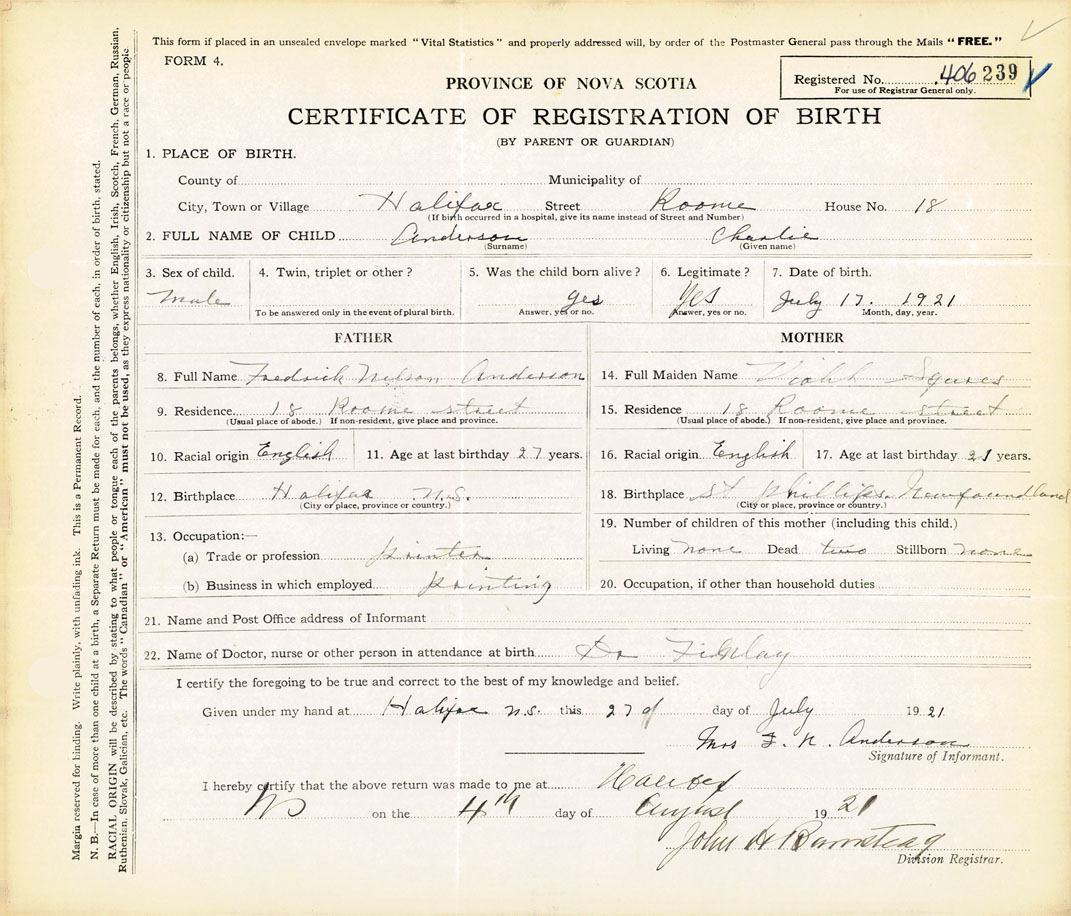 This form if placed in an unsealed envelope marked "Vital Statistics" and properly addressed will, by order of the Postmaster General pass through the Mails "FREE."
FORM 4.
Registered No. 406 239
For use of Registrar General only.
PROVINCE OF NOVA SCOTIA
CERTIFICATE OF REGISTRATION OF BIRTH
(BY PARENT OR GUARDIAN)
1. PLACE OF BIRTH.
County of Municipality of
City, Town or Village Halifax Street Roome House No. 18
(If birth occurred in a hospital, give its name instead of Street and Number)
2. FULL NAME OF CHILD Anderson Charlie
(Surname) (Given name)
3. Sex of child. 4. Twin, triplet or other? 5. Was the child born alive? 6. Legitimate? 7. Date of birth.
Male yes Yes July 17. 1921
To be answered only in the event of plural birth. Answer, yes or no. Answer, yes or no. Month, day, year.
FATHER MOTHER
8. Full Name Fredrick Nelson Anderson 14. Full Maiden Name Squires
9. Residence 18 Roome street 15. Residence 18 Roome street
(Usual place of abode.) If non-resident, give place and province. (Usual place of abode.) If non-resident, give place and province.
10. Racial origin English 11. Age at last birthday 27 years. 16. Racial origin English 17. Age at last birthday 21 years.
12. Birthplace Halifax N.S. 18. Birthplace St Phillips. Newfoundland
(City or place, province or country.) (City or place, province or country.)
19. Number of children of this mother (including this child.)
13. Occupation:—
(a) Trade or profession printer Living none Dead two Stillborn none
(b) Business in which employed printing 20. Occupation, if other than household duties
21. Name and Post Office address of Informant
22. Name of Doctor, nurse or other person in attendance at birth Dr
I certify the foregoing to be true and correct to the best of my knowledge and belief.
Given under my hand at Halifax N.S. this 27 of day of July 1921
Mrs F. N. Anderson
Signature of Informant.
I hereby certify that the above return was made to me at Halifax
NS on the 4th day of August 1921
John A Barnstead
Division Registrar.
Margin reserved for binding. Write plainly, with unfading ink. This is a Permanent Record.
N. B.—In case of more than one child at a birth, a Separate Return must be made for each, and the number of each, in order of birth, stated.
RACIAL ORIGIN will be described by stating to what people or tongue each of the parents belongs, whether English, Irish, Scotch, French, German, Russian,
Ruthenian, Slovak, Galician, etc. The words "Canadian" or "American" must not be used, as they express nationality or citizenship but not a race or people